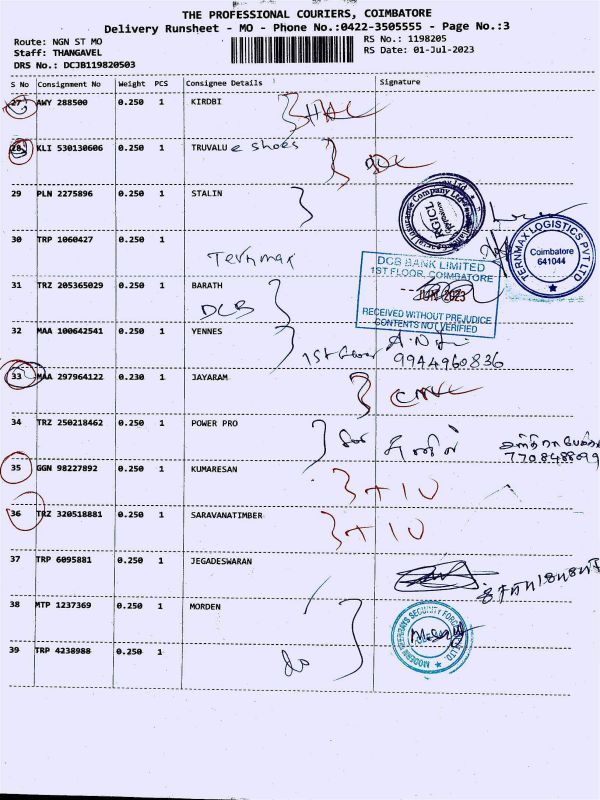 THE PROFESSIONAL COURIERS, COIMBATORE
Delivery Runsheet - MO - Phone No.:0422-3505555 - Page No.:3
Route: NGN ST MO
RS No.: 1198205
Staff: THANGAVEL
RS Date: 01-Jul-2023
DRS No.: DCJB119820503
S No Consignment No Weight PCS Consignee Details Signature
27 AWY 288500 0.250 1 KIRDBI
28 KLI 530130606 0.250 1 TRUVALU e shoes
29 PLN 2275896 0.250 1 STALIN
30 TRP 1060427 0.250 1
Ternmax
TERNMAX LOGISTICS PVT LTD
Coimbatore
641044
DCB BANK LIMITED
1ST FLOOR, COIMBATORE
JUN 2023
RECEIVED WITHOUT PREJUDICE
CONTENTS NOT VERIFIED
31 TRZ 205365029 0.250 1 BARATH
DCB
32 MAA 100642541 0.250 1 YENNES
1st floor 9944960836
33 MAA 297964122 0.230 1 JAYARAM
34 TRZ 250218462 0.250 1 POWER PRO
35 GGN 98227892 0.250 1 KUMARESAN
36 TRZ 320518881 0.250 1 SARAVANATIMBER
37 TRP 6095881 0.250 1 JEGADESWARAN
38 MTP 1237369 0.250 1 MORDEN
39 TRP 4238988 0.250 1
do